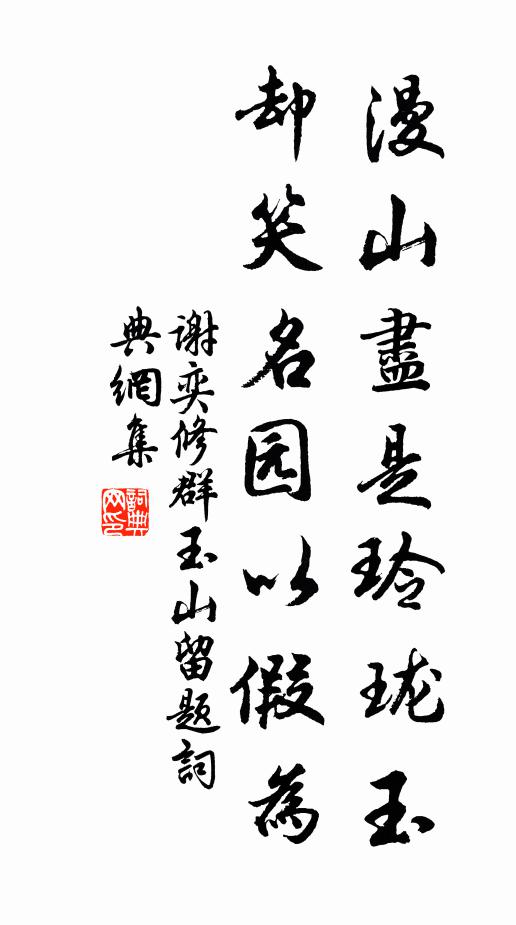 漫山盡是玲珑玉
却笑名园以假為
谢奕修群玉山留题詞
典網集
詞典網印